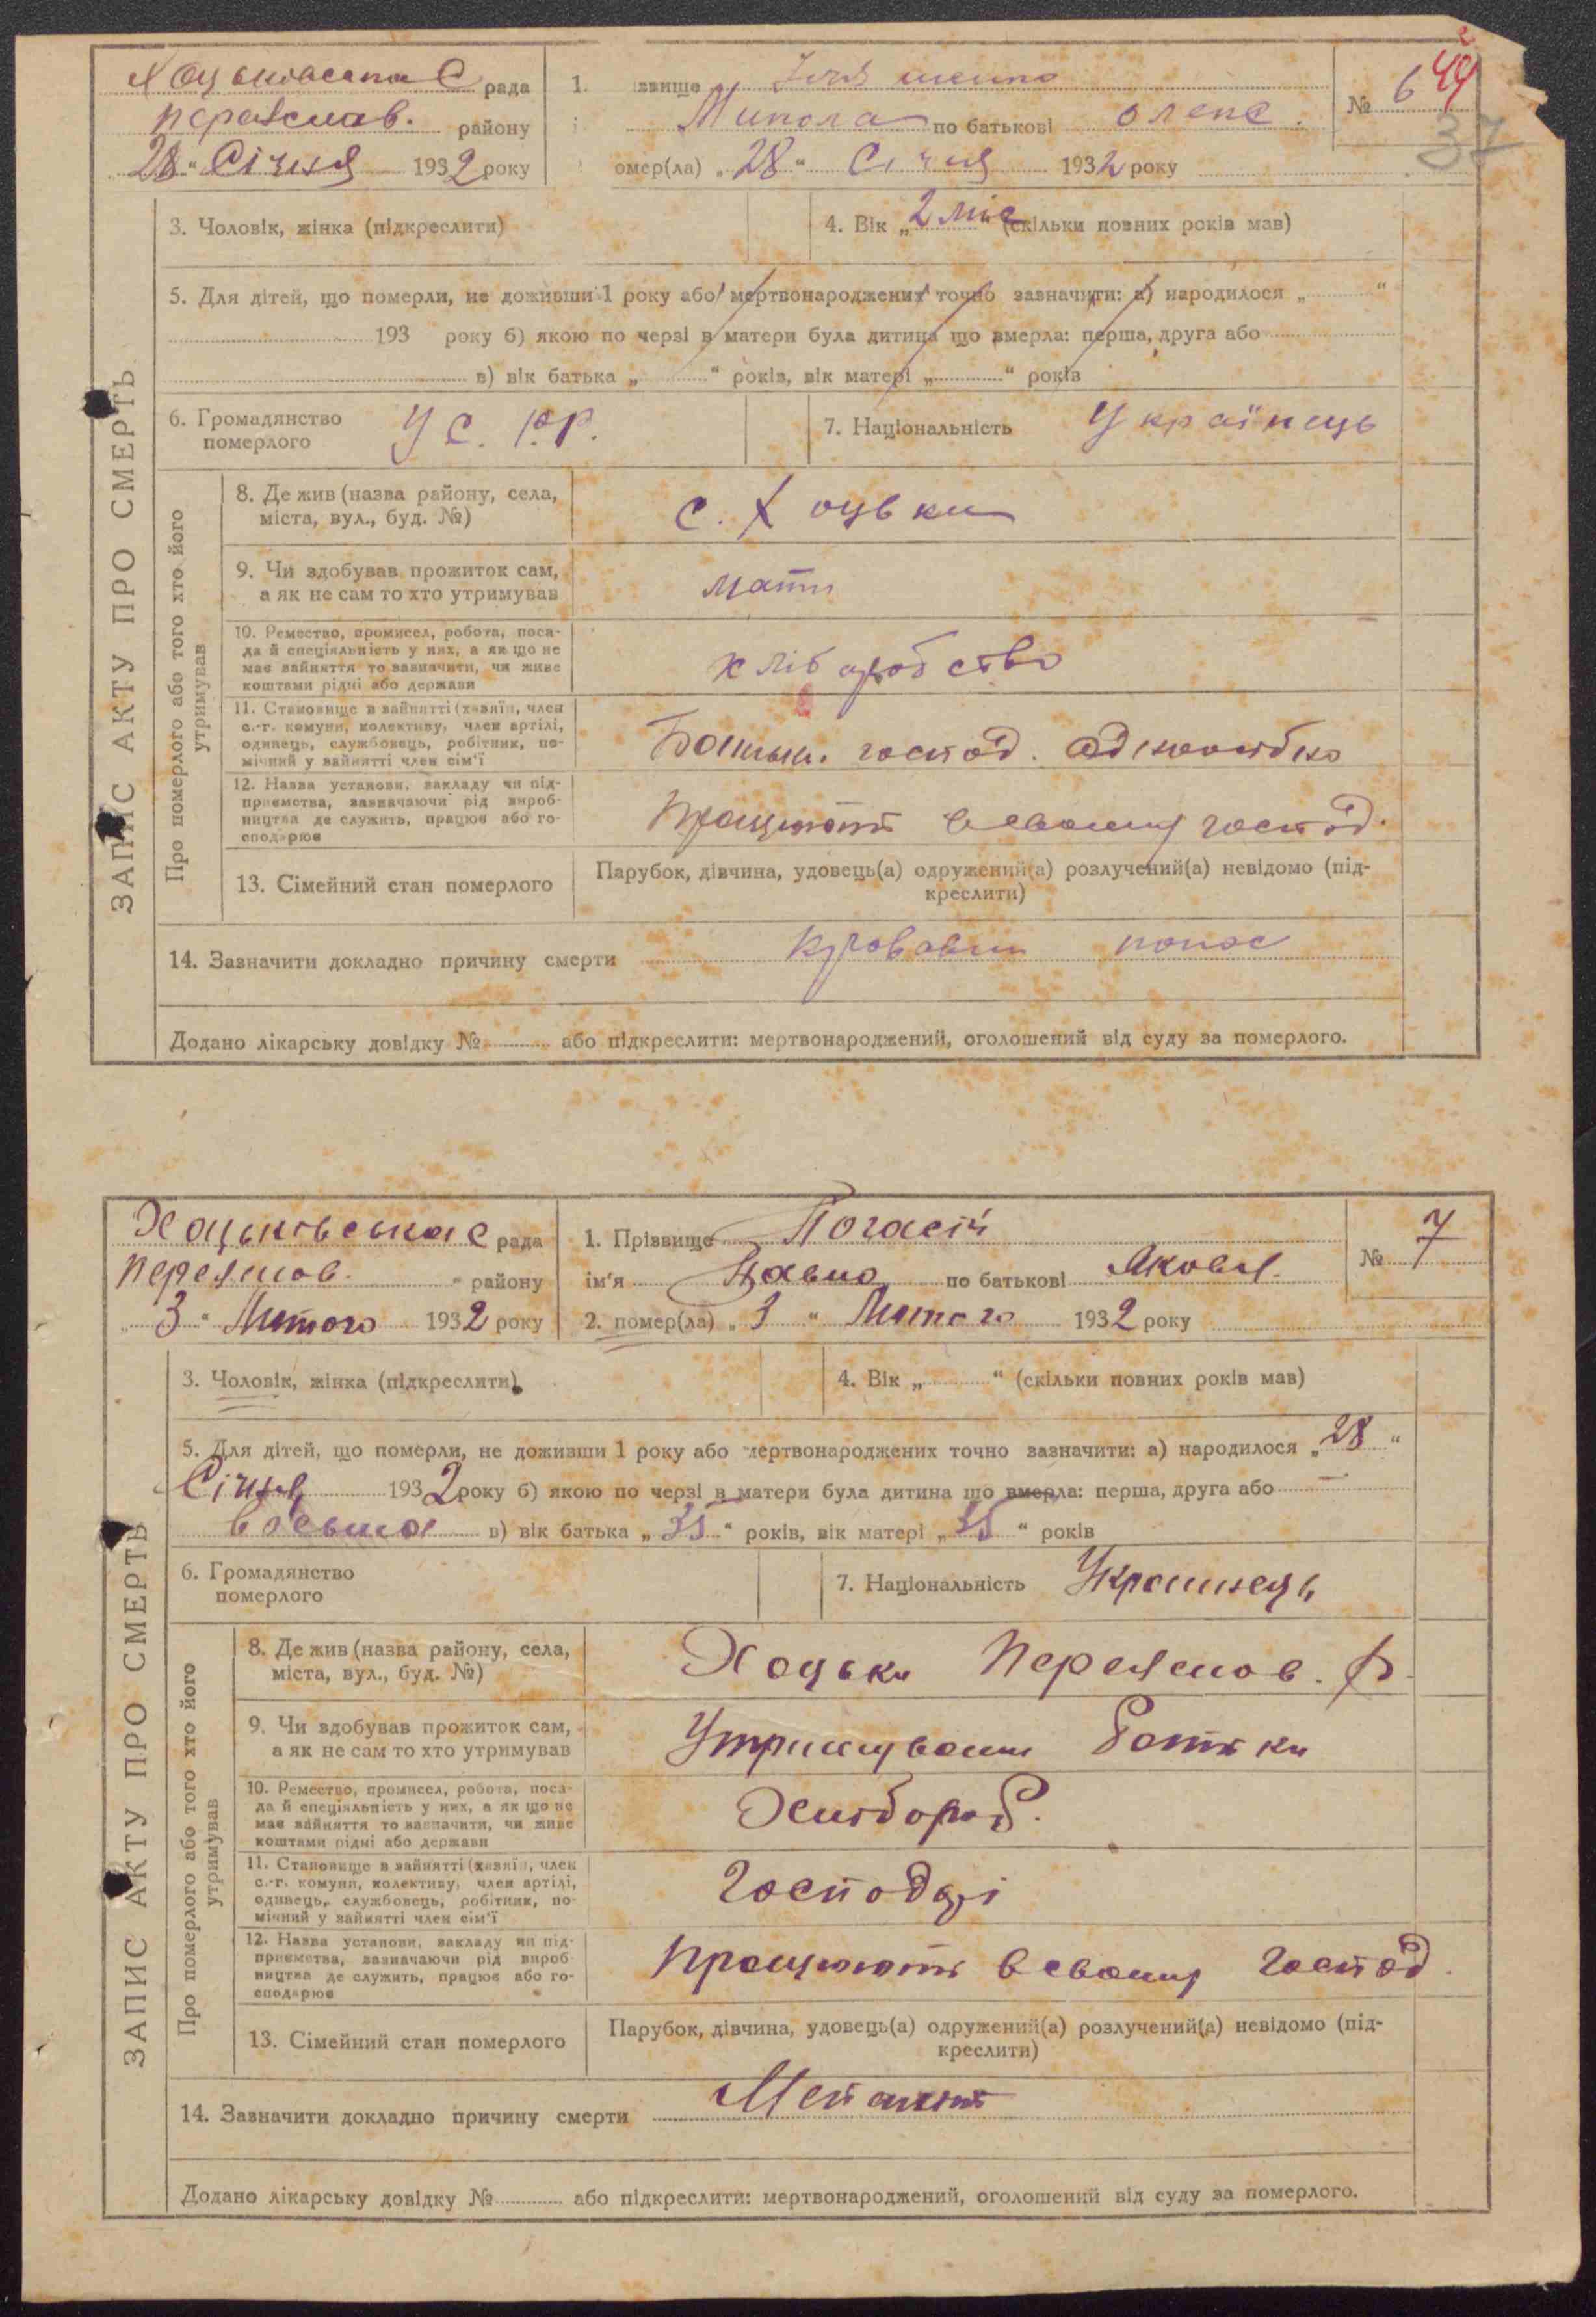 Хоцьківська С рада
переяслав. району
"28" Січня 1932 року
1. звище
Микола по батькові олекс.
омер(ла) "28" Січня 1932 року
№ 6
44
37
3. Чоловік, жінка (підкреслити)
4. Вік "2 міс" (скільки повних років мав)
5. Для дітей, що померли, не доживши 1 року або мертвонароджених точно зазначити: а) народилося „ “
193 року б) якою по черзі в матери була дитина що вмерла: перша, друга або
в) вік батька „ “ років, вік матері „ “ років
6. Громадянство
померлого
У С. Р.Р.
7. Національність Українець
ЗАПИС АКТУ ПРО СМЕРТЬ
Про померлого або того хто його
утримував
8. Де жив (назва району, села,
міста, вул., буд. №)
с. Хоцьки
9. Чи здобував прожиток сам,
а як не сам то хто утримував
мати
10. Ремество, промисел, робота, поса-
да й спеціяльність у них, а як що не
має зайняття то зазначити, чи живе
коштами рідні або держави
хліборобство
11. Становище в зайнятті (хазяїн, член
с.-г. комуни, колективу, член артілі,
одинець, службовець, робітник, по-
мічний у зайнятті член сім'ї
Батьки. господ. одноосібно
12. Назва установи, закладу чи під-
приємства, зазначаючи рід вироб-
ництва де служить, працює або го-
сподарює
Працюють в своєму господ.
13. Сімейний стан померлого
Парубок, дівчина, удовець(а) одружений(а) розлучений(а) невідомо (під-
креслити)
14. Зазначити докладно причину смерти кровавий понос
Додано лікарську довідку № або підкреслити: мертвонароджений, оголошений від суду за померлого.
Хоцьківська С рада
Переяслов. району
„3“ Лютого 1932 року
1. Прізвище Погасій
ім'я Павло по батькові Яковл.
2. помер(ла) „3“ Лютого 1932 року
№ 7
3. Чоловік, жінка (підкреслити)
4. Вік „ “ (скільки повних років мав)
5. Для дітей, що померли, не доживши 1 року або мертвонароджених точно зазначити: а) народилося „28“
Січня 1932 року б) якою по черзі в матери була дитина що вмерла: перша, друга або
восьма в) вік батька „35“ років, вік матері „35“ років
6. Громадянство
померлого
7. Національність Українець
ЗАПИС АКТУ ПРО СМЕРТЬ
Про померлого або того хто його
утримував
8. Де жив (назва району, села,
міста, вул., буд. №)
Хоцьки Переяслов. Р.
9. Чи здобував прожиток сам,
а як не сам то хто утримував
Утримували батьки
10. Ремество, промисел, робота, поса-
да й спеціяльність у них, а як що не
має зайняття то зазначити, чи живе
коштами рідні або держави
Хлібороб.
11. Становище в зайнятті (хазяїн, член
с.-г. комуни, колективу, член артілі,
одинець, службовець, робітник, по-
мічний у зайнятті член сім'ї
Господарі
12. Назва установи, закладу чи під-
приємства, зазначаючи рід вироб-
ництва де служить, працює або го-
сподарює
Працюють в своєму господ.
13. Сімейний стан померлого
Парубок, дівчина, удовець(а) одружений(а) розлучений(а) невідомо (під-
креслити)
14. Зазначити докладно причину смерти
Додано лікарську довідку № або підкреслити: мертвонароджений, оголошений від суду за померлого.